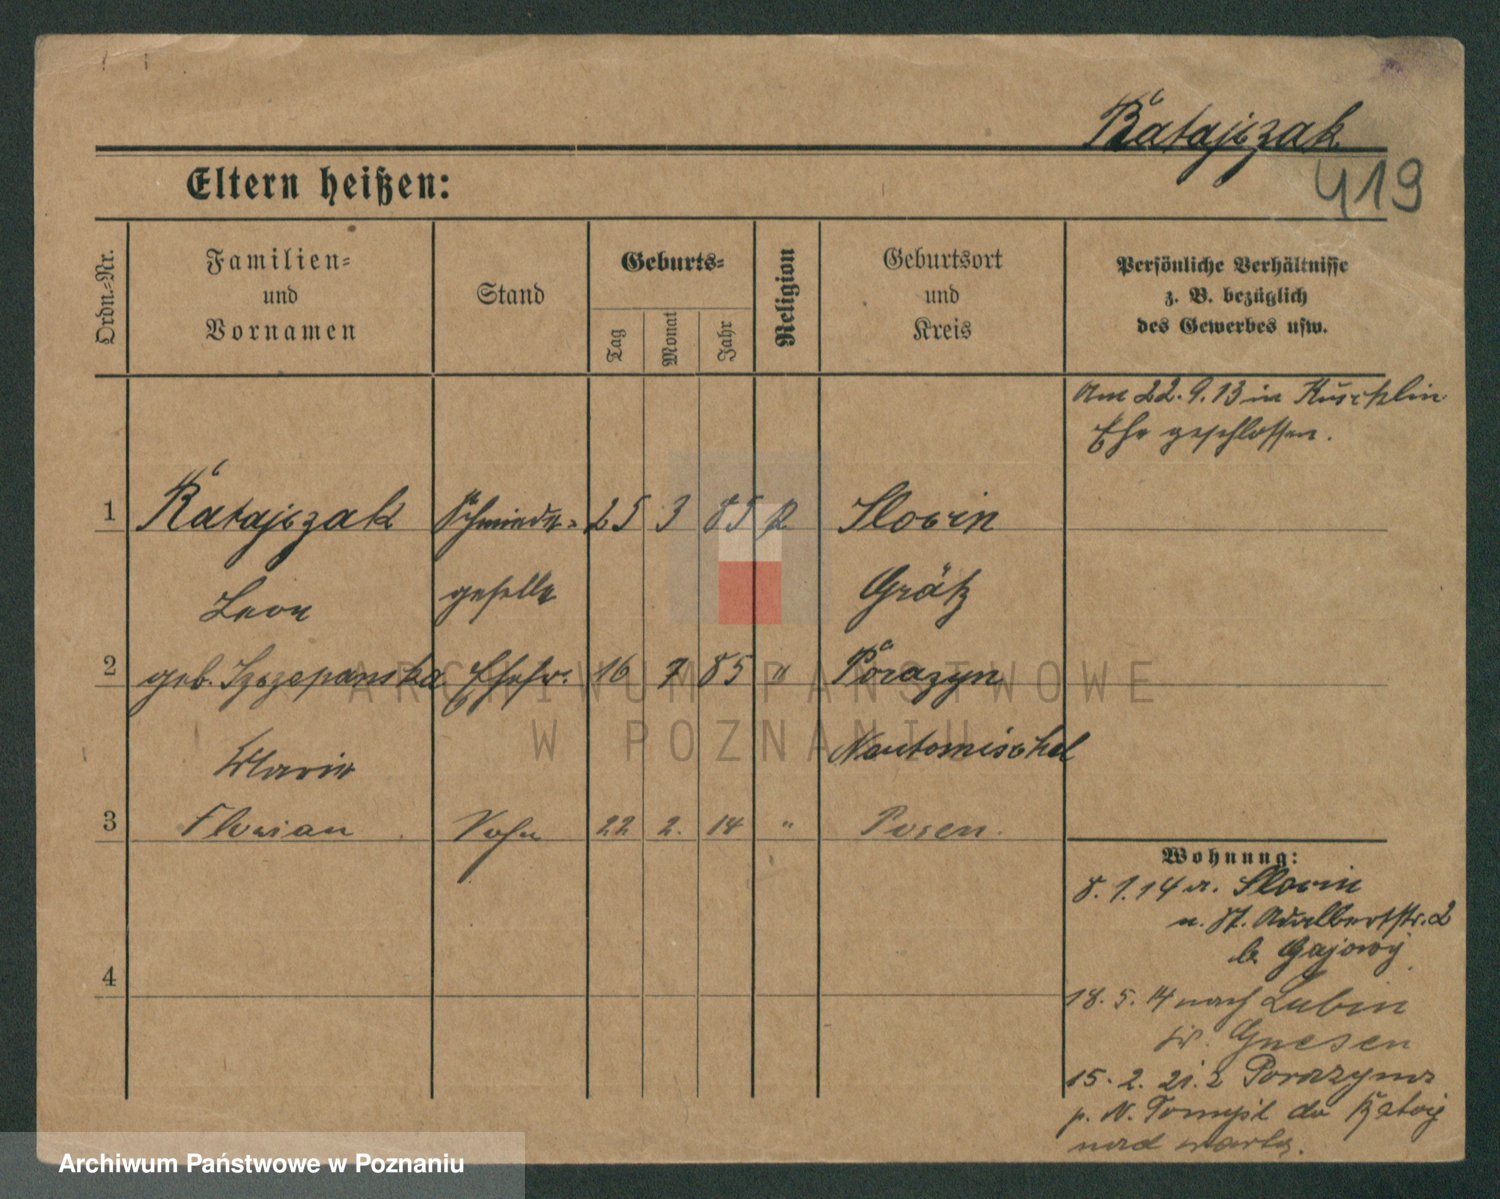 Ratajczak
419
Eltern heißen:
Ordn.-Nr.
Familien-
und
Vornamen
Stand
Geburts-
Tag
Monat
Jahr
Religion
Geburtsort
und
Kreis
Persönliche Verhältnisse
z. B. bezüglich
des Gewerbes usw.
Am 22. 9. 13 in Kuschlin
Ehe geschlossen.
1 Ratajczak Schmiede- 25 3 85 Slocin
Leon geselle Grätz
2 geb. Szczepanska Ehefr. 16 7 85 " Porazyn
Marie Neutomischel
3 Florian Sohn 22 2. 14 " Posen.
Wohnung:
8. 1. 14 v. Slocin
n. St. Adalbertstr. 2
b. Gajowy
18. 5. 14 nach Lubin
Kr. Gnesen
15. 2. 21. z Porazyna
p. N. Tomyśl do
nad Wartą.
4
ARCHIWUM PAŃSTWOWE
W POZNANIU
Archiwum Państwowe w Poznaniu